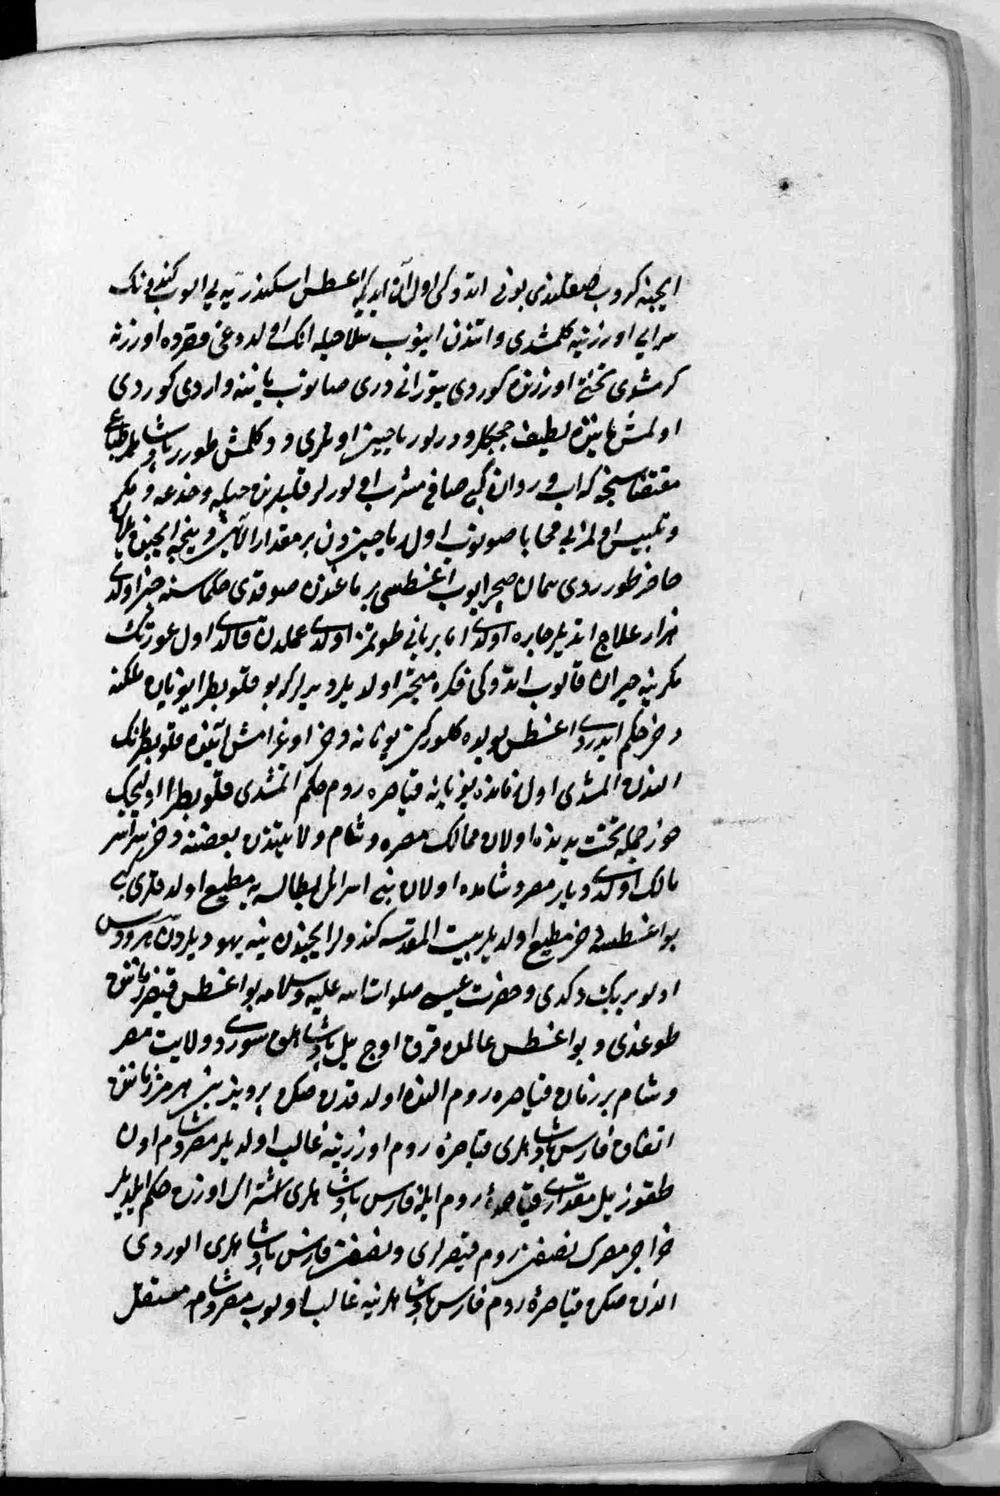 ایچنه کروب صقلندی بونی اتدوکی اول آن ایدیکه اغسطس اسکندریه یی الوب کندونك
سرایی اوزرینه کلمشدی و اتندن اینوب سلاحیله انك اولدوغی مقرده اوزرنه
کرمشدی تخت اوزرنده کوردی یتورانی دری صانوب یاننه واردی کوردی
اولمش یاننده لطیف چچکلر و درلو ریاحین اوتلری وار دکلمش طورر پادشاهلر طباع
مقتضاسنجه که آب روان کبی صافی مشرب اولورلر قلبلرنده حیله و خدعه و مکر
و تلبیس اولمز بی محابا صونوب اول ریاحیندن بر مقدار الآنش و ینجه ایچنده ییلان
حاضر طورردی همان صچرایوب اغسطسی پرماغندن صوقدی حکماسنه خبر اولدی
هزار علاج ایتدیلر چاره اولدی اما بر یانی طوتمز اولدی عملدن قالدی اول عورتك
مکرینه حیران قالوب اتدوکی فکره متحیر اولدیلر و دیرلر که بو قلوبطرا یونان ملکنه
دخی حکم ایدردی اغسطس بو یده کلورکن یونانه دخی اوغرامش آنی قلوبطرانك
الندن المشدی اول زمانده یونانه قیاصره روم حکم اتمشدی قلوبطرا اولیجك
جمله تخت یدنده اولان ممالك مصره و شام ولایتندن بعضنه دخی سراسر
مالك اولدی دیار مصر و شامده اولان بنی اسرائل بطالسه یه مطیع اولدقلری کبی
بو اغسطسه دخی مطیع اولدیلر بیت المقدسه کندولر ایچندن ینه یهودیلردن هرودوس
اولو بر بك دکدی و حضرت عیسی صلوات الله علیه و سلامه بو اغسطس قیصر زماننده
طوغدی و بو اغسطس عالمده قرق اوچ ییل پادشاهلق سوردی و ولایت مصر
و شام بر زمان قیاصره روم النده اولدقدن صکره پرویز بن هرمز زماننده
اتفاق فارس پادشاهلری قیاصره روم اوزرینه غالب اولدیلر مصر و شام اون
طقوز ییل مقداری قیاصرهٔ روم ایله فارس پادشاهلری اشتراك اوزره حکم ایلدیلر
خراج مصرك نصفنی روم قیصرلری و نصفنی فارس پادشاهلری الوردی
اندن صکره قیاصرهٔ روم فارس پادشاهلرینه غالب اولوب مصر و شامه مستقل